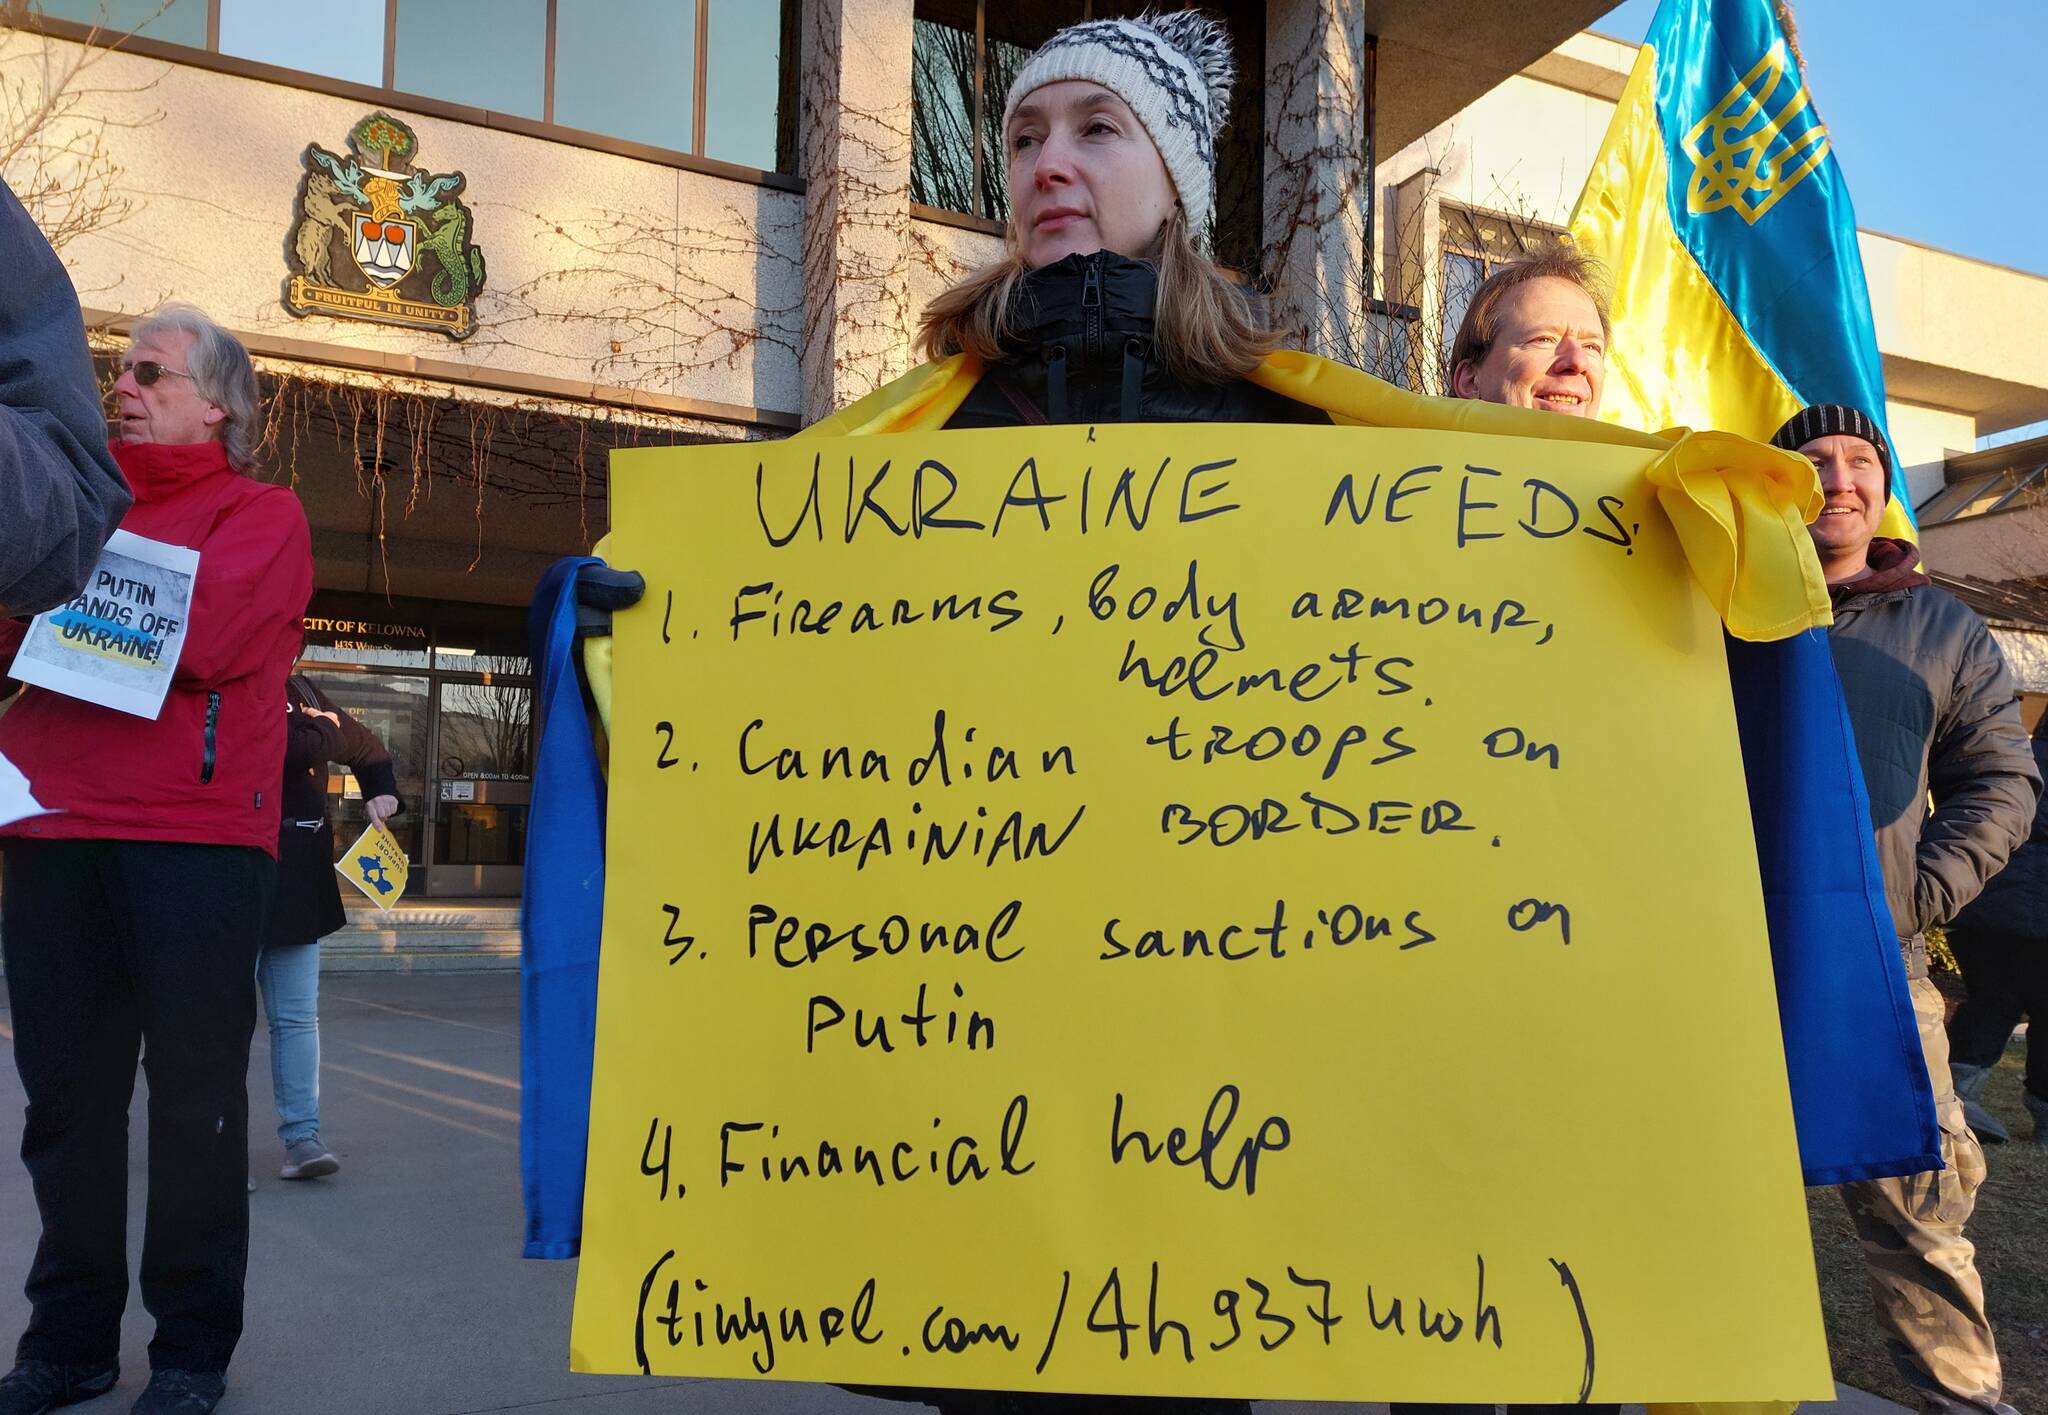 FRUITFUL IN UNITY
UKRAINE NEEDS:
1. Firearms, body armour,
helmets.
2. Canadian troops on
UKRAINIAN BORDER.
3. Personal sanctions on
Putin
4. Financial help
(tinyurl.com/4h937uwh)
PUTIN
HANDS OFF
UKRAINE!
CITY OF KELOWNA
1435 Water St
OPEN 8:00AM TO 4:00PM
SUPPORT
UKRAINE